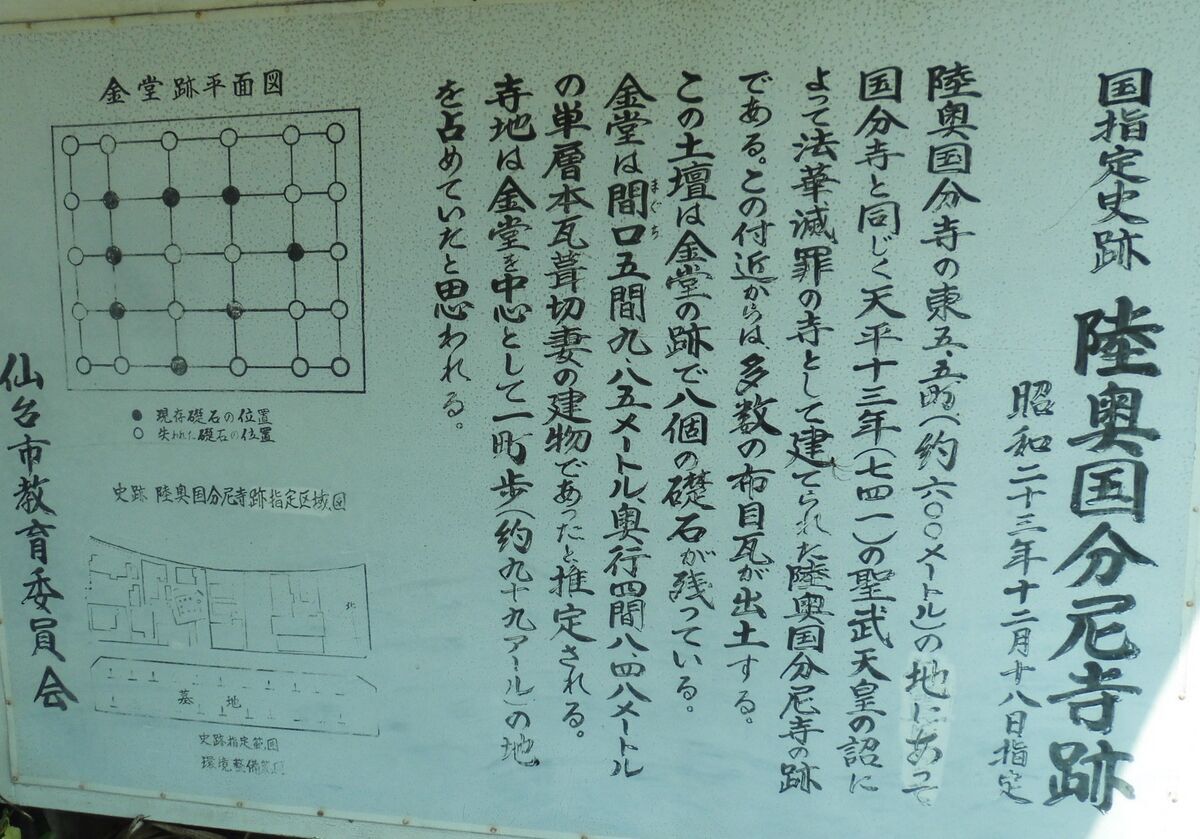 国指定史跡 陸奥国分尼寺跡
昭和二十三年十二月十八日指定
陸奥国分寺の東五・五町(約六〇〇メートル)の地にあって
国分寺と同じく天平十三年(七四一)の聖武天皇の詔に
よって法華滅罪の寺として建てられた陸奥国分尼寺の跡
である。この付近からは多数の布目瓦が出土する。
この土壇は金堂の跡で八個の礎石が残っている。
金堂は間口五間九・八五メートル、奥行四間八四八メートル
まぐち
の単層本瓦葺切妻の建物であったと推定される。
寺地は金堂を中心として一町歩(約九十九アール)の地
を占めていたと思われる。
金堂跡平面図
現存礎石の位置
失われた礎石の位置
史跡 陸奥国分尼寺跡指定区域図
北
墓地
史跡指定範囲
環境整備範囲
仙台市教育委員会